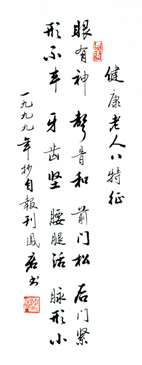 健康老人八特征
眼有神 声音和 前门松 后门紧
形不丰 牙齿坚 腰腿活 脉形小
一九九九年抄自報刊凤君书